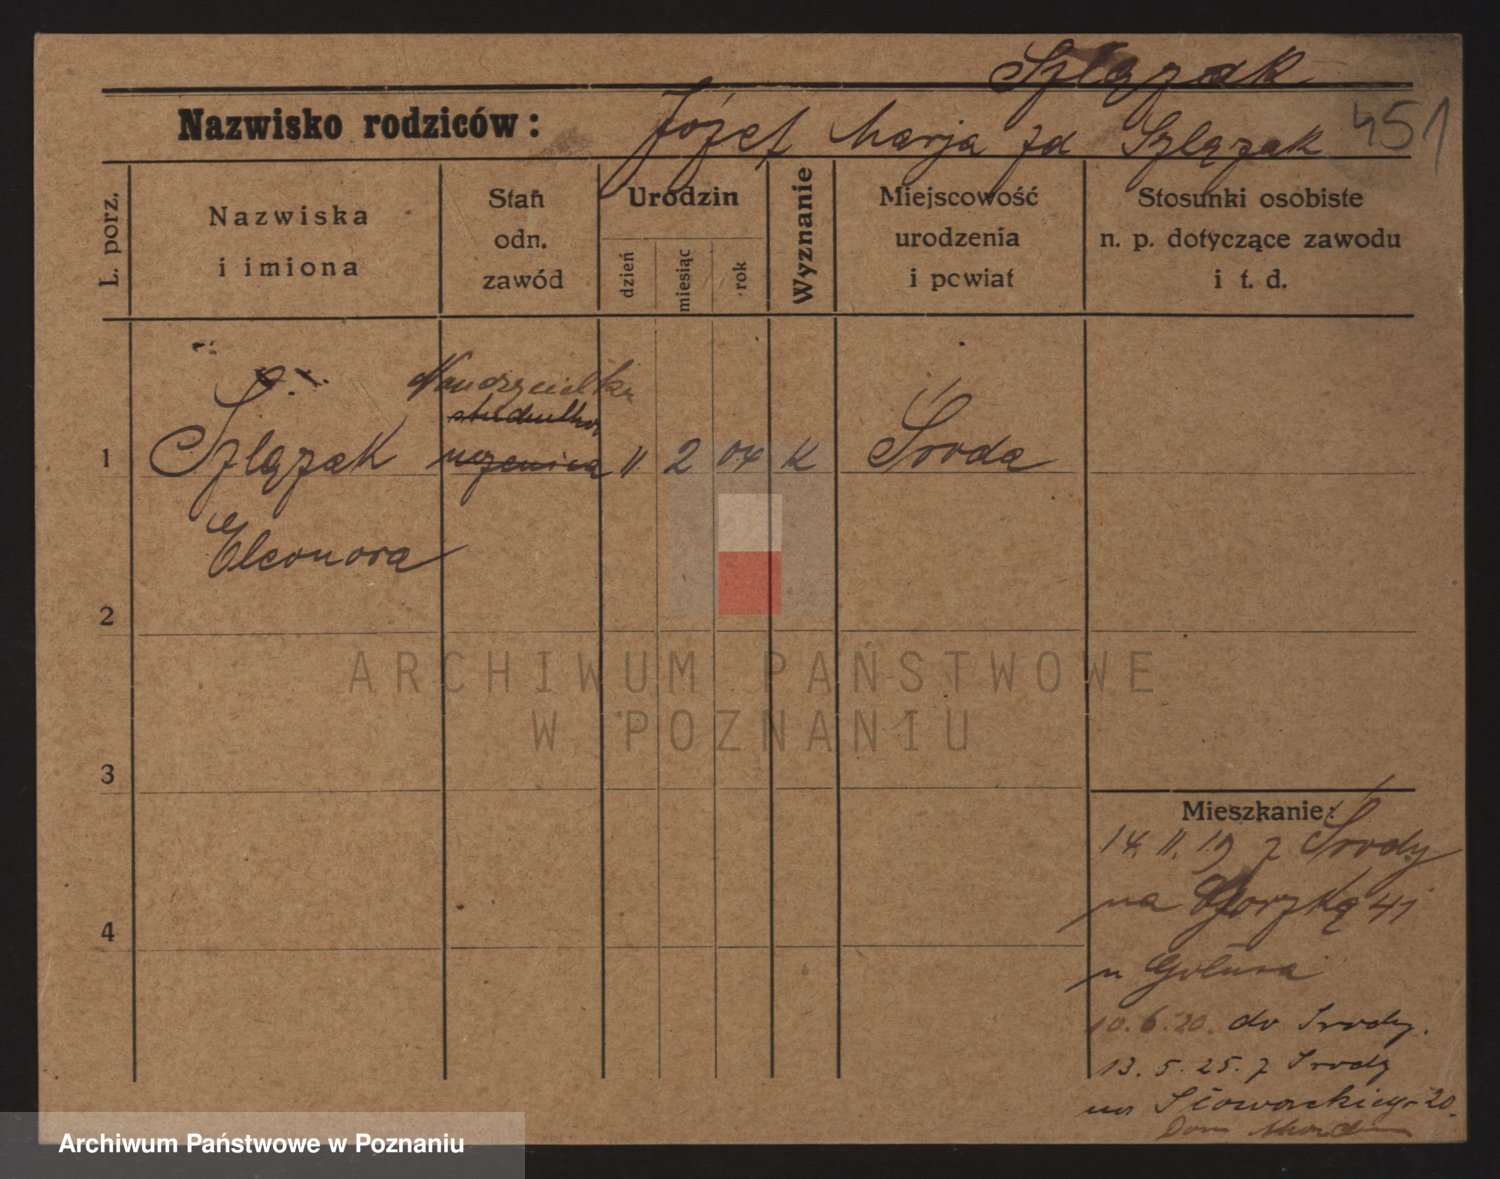 Szlązak
Nazwisko rodziców: Józef Marja zd Szlązak 451
L. porz.
Nazwiska
i imiona
Stan
odn.
zawód
Urodzin
dzień
miesiąc
rok
Wyznanie
Miejscowość
urodzenia
i powiat
Stosunki osobiste
n. p. dotyczące zawodu
i t. d.
Nauczycielka
studentka
1 Szlązak uczenica 11 2 04 K Środa
Eleonora
2
3
4
ARCHIWUM PAŃSTWOWE
W POZNANIU
Mieszkanie:
14. 11. 19 z Środy
na Gorzką 41
u
10. 6. 20. do Środy.
13. 5. 25. z Środy
na Słowackiego 20.
Dom
Archiwum Państwowe w Poznaniu